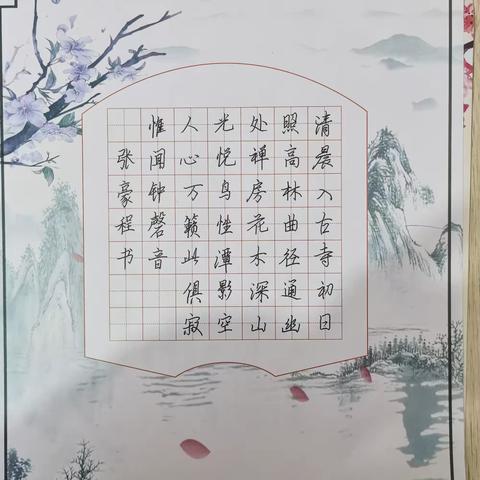 清晨入古寺初日
照高林曲径通幽
处禅房花木深山
光悦鸟性潭影空
人心万籁此俱寂
惟闻钟磬音
张豪程书